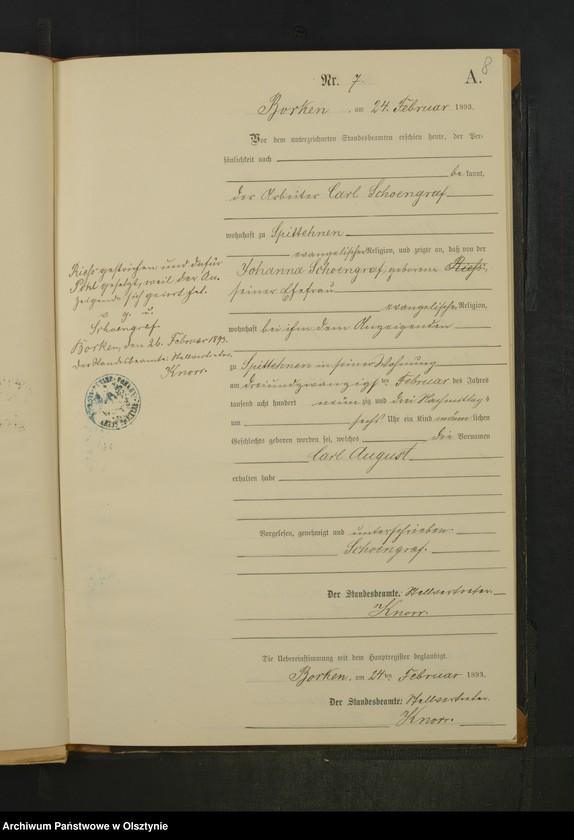 8
Nr. 7
A.
Borken, am 24. Februar 1893.
Vor dem unterzeichneten Standesbeamten erschien heute, der Per-
sönlichkeit nach
bekannt,
der Arbeiter Carl Schoengraf
wohnhaft zu Spittehnen
evangelischer Religion, und zeigte an, daß von der
Johanna Schoengraf geborene Riess,
seiner Ehefrau
evangelische Religion,
wohnhaft bei ihm dem Anzeigenden
zu Spittehnen in seiner Wohnung
am dreiundzwanzigsten Februar des Jahres
tausend acht hundert neunzig und drei Nachmittags
um sechs Uhr ein Kind männlichen
Geschlechts geboren worden sei, welches die Vornamen
Carl August
erhalten habe
Vorgelesen, genehmigt und unterschrieben
Schoengraf.
Der Standesbeamte. Stellvertreter
Knorr.
Die Uebereinstimmung mit dem Hauptregister beglaubigt.
Borken, am 24ten Februar 1893.
Der Standesbeamte: Stellvertreter.
Knorr.
Riess gestrichen und dafür
Pohl gesetzt, weil der An-
zeigende sich geirrt hat.
v. g. u.
Schoengraf.
Borken, den 26. Februar 1893.
Der Standesbeamte: Stellvertreter.
Knorr.
Archiwum Państwowe w Olsztynie